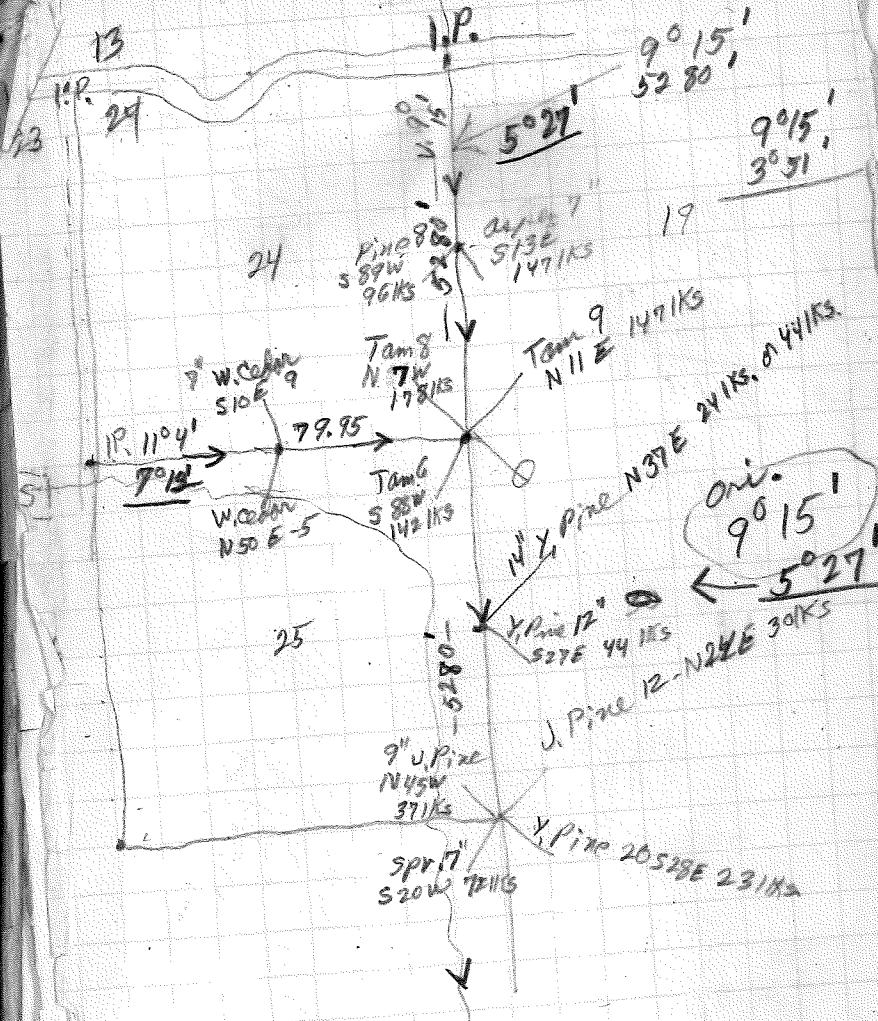 13
I.P.
9° 15'
5280'
I.P.
24
23
V. 9° 15'
5° 27'
9° 15'
3° 51'
19
24
Pine 8"
S 89W
96lKs
5280'
Aspen 7"
S13E
147lKs
7" W. Cedar
S10E 9
Tam 8
N 7 W
178lKs
Tam 9
N 11 E 147lKs
I.P. 11° 4'
7° 13'
79.95
W. Cedar
N50E-5
Tam 6
S 88W
142lKs
14" Y. Pine N37E 24lKs. or 44lKs.
Ori.
9° 15'
5° 27'
25
Y. Pine 12"
S27E 44lKs
-5280-
J. Pine 12-N24E 30lKs
9" J. Pine
N45W
37lKs
Y. Pine 20 S28E 23lKs
Spr. 7"
S20W 72lKs